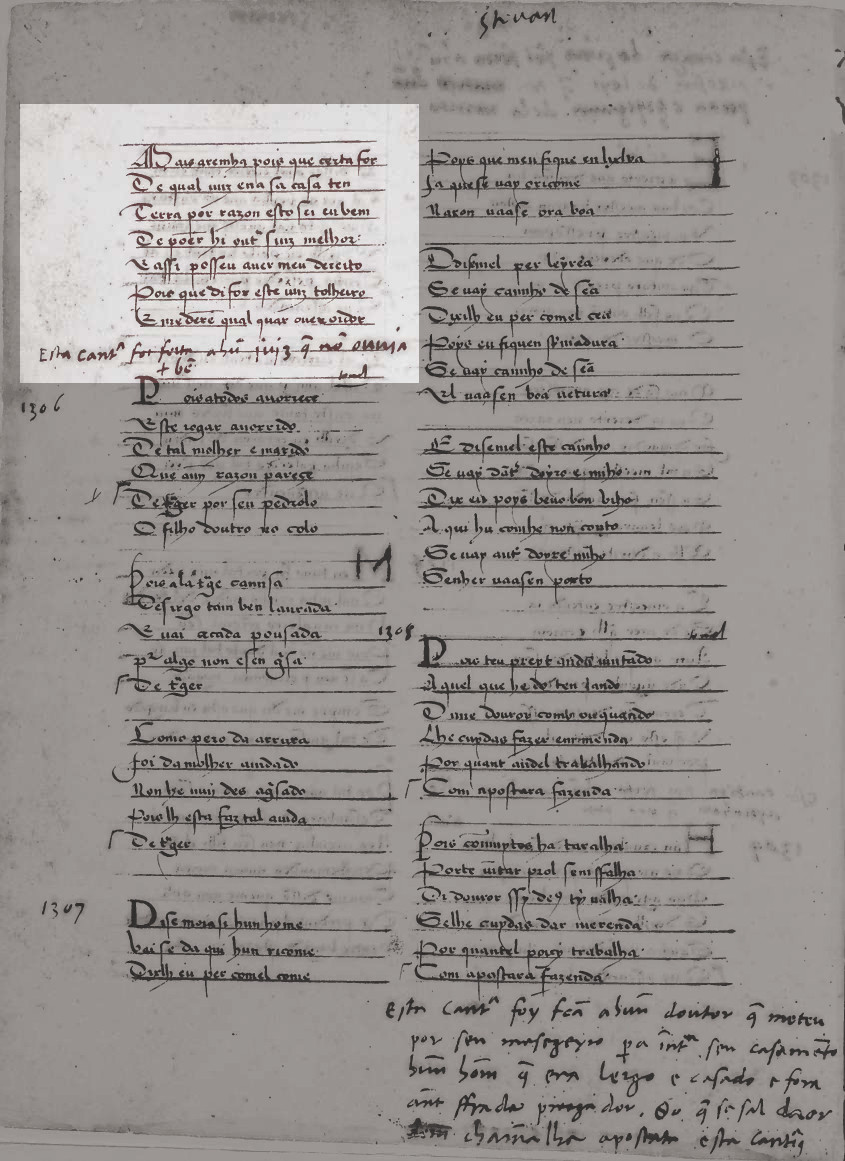 Mais aremha pois que certa for
De qual uiz ena sa casa ten
Terra por razon esto sei eu bem
De poer hi outr̃ suiz melhor
E assi posseu auer meu dereito
Pois que di for este uiz tolheito
E me derē qual quar ouuidor
Esta Cantᵃ foi feita a hũ juiz q̃ nō ouuia
+ bē
1306
Pois atodos auorrece
Este iogar auorrido
De tal molher e marido
Que amī razon pareçe
De tr̃ger por seu pedrolo
O filho doutro no colo
Pois ala tr̃ge camisa
De sirgo tam ben laurada
E uai cada pousada
pr̃ algo non esen g̃sa
De tr̃ger
Como pero da arruda
foi da molher aiudado
Non he mui des ag̃sado
Pois lh esta faz tal aiuda
De tr̃ger
1307
Disemora si hun home
Vaise da qui hun ricome
Dixlh eu per comel come
Poys que meu fique en helua
Ja quese uay oricome
Naron uaase ora boa
E disemel per leyrea
Se uay caminho de seā
Dixilh eu per comel cea
Poys eu fiquen seniadura
Se uay caminho de seā
Al uaasen boa uētura
E disemel este caminho
Se uay dāt̃ doyro e minho
Dix eu poys beuo bon uiho
A qui hu comhe non conto
Se uay ant̃ doyre minho
Senher uaasen porto
1308
Pois teu preyt anda iuntado
Aquel que he do ten lando
Di me douror comt ou quando
Lhe cuydas fazer enmenda
Por quant andel trabalhando
Com apostara fazenda
Pois contr̃mptos ha taralha
Porte iūtar prol sen ffalha
Di douror ssy deꝯ ty ualha
Selhe cuydas dar merenda
Por quantel pore trabalha
Com apostara fazenda
Esta Cantᵃ foy fcā a hun doutor q̃ meteu
por seu mesegeyro pa īntᵃ seu casamēto
hum hom̃ q̃ era lergo e casado e fora
ant ffrade preegador. So q̃ se sal daor
chamalha apostata esta Cantiᵃ